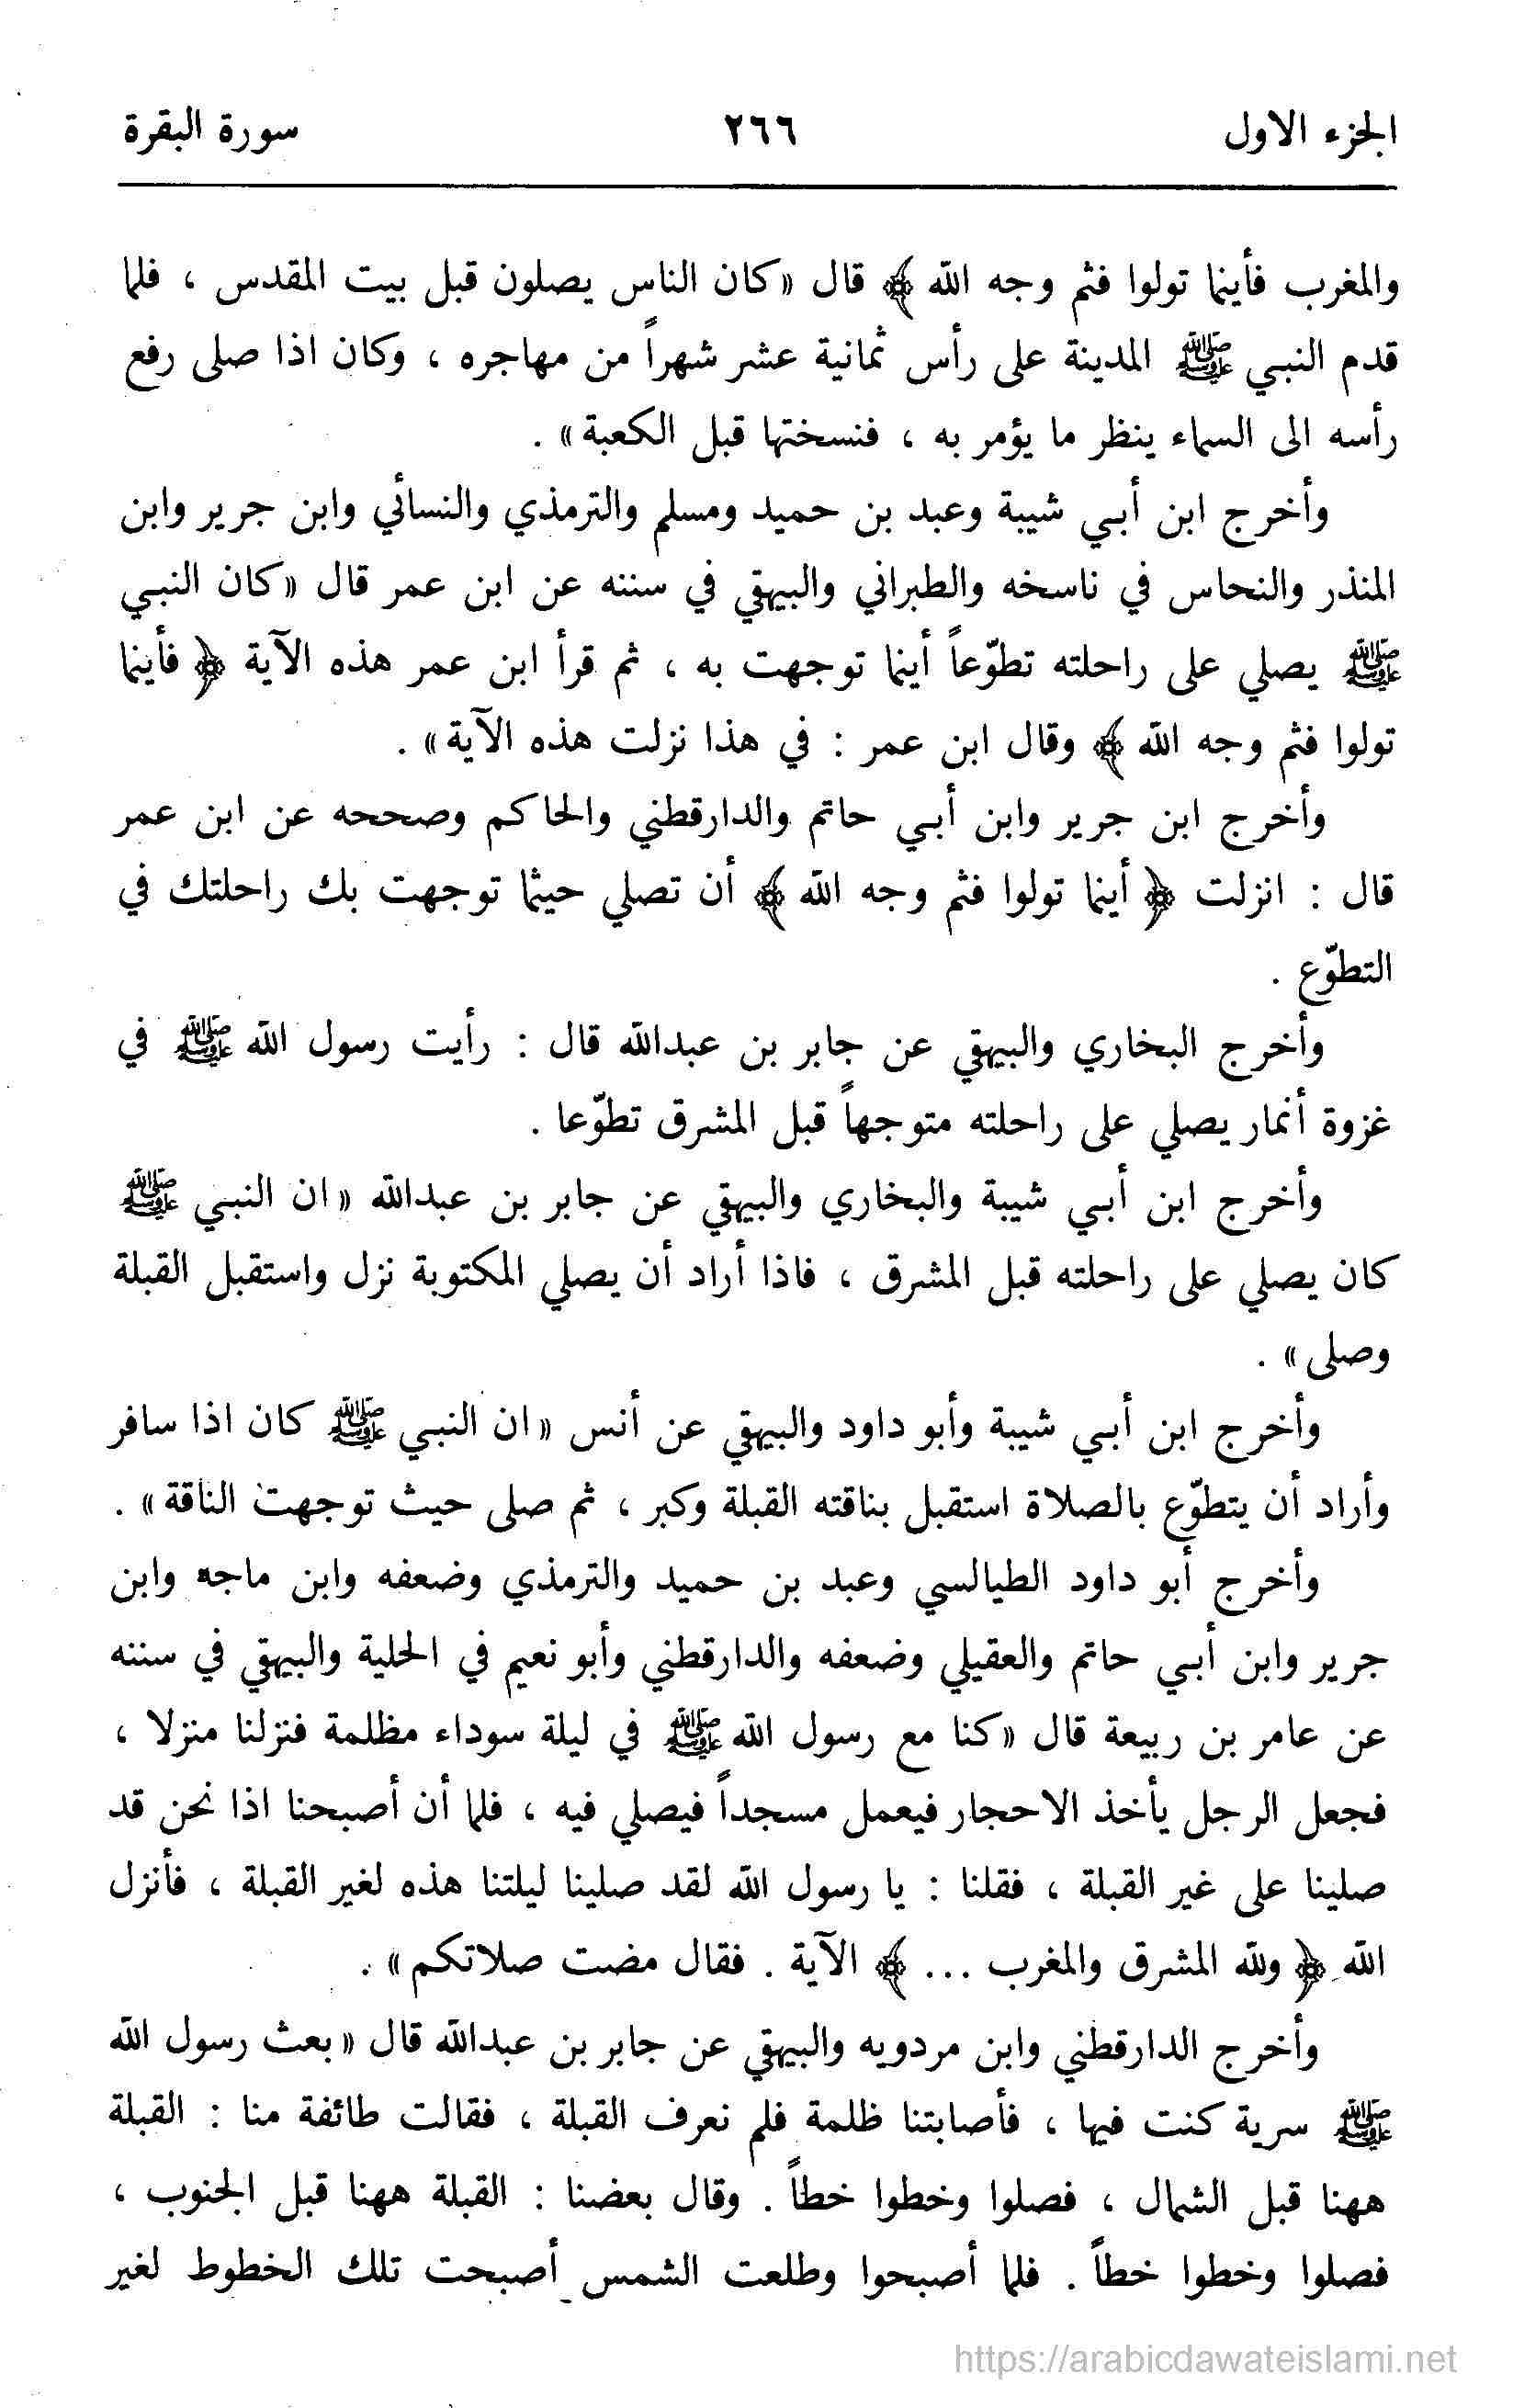 الجزء الاول ٢٦٦ سورة البقرة
والمغرب فأينما تولوا فثم وجه الله ﴾ قال «كان الناس يصلون قبل بيت المقدس ، فلما
قدم النبي ﷺ المدينة على رأس ثمانية عشر شهراً من مهاجره ، وكان اذا صلى رفع
رأسه الى السماء ينظر ما يؤمر به ، فنسختها قبل الكعبة» .
وأخرج ابن أبي شيبة وعبد بن حميد ومسلم والترمذي والنسائي وابن جرير وابن
المنذر والنحاس في ناسخه والطبراني والبيهقي في سننه عن ابن عمر قال «كان النبي
ﷺ يصلي على راحلته تطوّعاً أينما توجهت به ، ثم قرأ ابن عمر هذه الآية ﴿ فأينما
تولوا فثم وجه الله ﴾ وقال ابن عمر : في هذا نزلت هذه الآية» .
وأخرج ابن جرير وابن أبي حاتم والدارقطني والحاكم وصححه عن ابن عمر
قال : انزلت ﴿ أينما تولوا فثم وجه الله ﴾ أن تصلي حيثما توجهت بك راحلتك في
التطوّع .
وأخرج البخاري والبيهقي عن جابر بن عبدالله قال : رأيت رسول الله ﷺ في
غزوة أنمار يصلي على راحلته متوجهاً قبل المشرق تطوّعا .
وأخرج ابن أبي شيبة والبخاري والبيهقي عن جابر بن عبدالله «ان النبي ﷺ
كان يصلي على راحلته قبل المشرق ، فاذا أراد أن يصلي المكتوبة نزل واستقبل القبلة
وصلى» .
وأخرج ابن أبي شيبة وأبو داود والبيهقي عن أنس «ان النبي ﷺ كان اذا سافر
وأراد أن يتطوّع بالصلاة استقبل بناقته القبلة وكبر ، ثم صلى حيث توجهت الناقة» .
وأخرج أبو داود الطيالسي وعبد بن حميد والترمذي وضعفه وابن ماجه وابن
جرير وابن أبي حاتم والعقيلي وضعفه والدارقطني وأبو نعيم في الحلية والبيهقي في سننه
عن عامر بن ربيعة قال «كنا مع رسول الله ﷺ في ليلة سوداء مظلمة فنزلنا منزلا ،
فجعل الرجل يأخذ الاحجار فيعمل مسجداً فيصلي فيه ، فلما أن أصبحنا اذا نحن قد
صلينا على غير القبلة ، فقلنا : يا رسول الله لقد صلينا ليلتنا هذه لغير القبلة ، فأنزل
الله ﴿ ولله المشرق والمغرب ... ﴾ الآية . فقال مضت صلاتكم» .
وأخرج الدارقطني وابن مردويه والبيهقي عن جابر بن عبدالله قال «بعث رسول الله
ﷺ سرية كنت فيها ، فأصابتنا ظلمة فلم نعرف القبلة ، فقالت طائفة منا : القبلة
ههنا قبل الشمال ، فصلوا وخطوا خطاً . وقال بعضنا : القبلة ههنا قبل الجنوب ،
فصلوا وخطوا خطاً . فلما أصبحوا وطلعت الشمس أصبحت تلك الخطوط لغير
https://arabicdawateislami.net